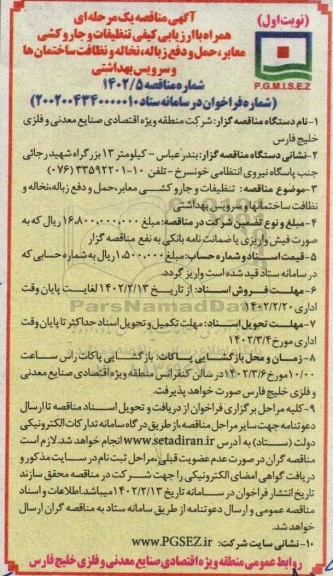 (نوبت اول)
آگهی مناقصه یک مرحله ای
همراه با ارزیابی کیفی تنظیفات و جاروکشی
معابر، حمل و دفع زباله، نخاله و نظافت ساختمان ها
و سرویس بهداشتی
P.G.M.I.S.E.Z
شماره مناقصه ۱۴۰۲/۵
(شماره فراخوان در سامانه ستاد ۲۰۰۲۰۰۴۳۴۰۰۰۰۰۱۰)
۱- نام دستگاه مناقصه گزار: شرکت منطقه ویژه اقتصادی صنایع معدنی و فلزی
خلیج فارس
۲- نشانی دستگاه مناقصه گزار: بندرعباس - کیلومتر ۱۳ بزرگراه شهید رجائی
جنب پاسگاه نیروی انتظامی خونسرخ - تلفن ۱۰-۳۳۵۹۲۲۰۱ (۰۷۶)
۳- موضوع مناقصه: تنظیفات و جارو کشی معابر، حمل و دفع زباله، نخاله و
نظافت ساختمانها و سرویس بهداشتی
۴- مبلغ و نوع تضمین شرکت در مناقصه: مبلغ ۱۶.۸۰۰.۰۰۰.۰۰۰ ریال که به
صورت فیش واریزی یا ضمانت نامه بانکی به نفع مناقصه گزار
۵- قیمت اسناد و شماره حساب: مبلغ ۱.۵۰۰.۰۰۰ ریال به شماره حسابی که
در سامانه ستاد قید شده است واریز گردد.
۶- مهلت فروش اسناد: از تاریخ ۱۴۰۲/۲/۱۳ لغایت پایان وقت
اداری ۱۴۰۲/۲/۲۰
۷- مهلت تحویل اسناد: مهلت تکمیل و تحویل اسناد حداکثر تا پایان وقت
اداری مورخ ۱۴۰۲/۳/۴
۸- زمان و محل بازگشایی پاکات: بازگشایی پاکات راس ساعت
۱۰/۰۰ مورخ ۱۴۰۲/۳/۶ در سالن کنفرانس منطقه ویژه اقتصادی صنایع معدنی
و فلزی خلیج فارس صورت خواهد پذیرفت.
۹- کلیه مراحل برگزاری فراخوان از دریافت و تحویل اسناد مناقصه تا ارسال
دعوتنامه جهت سایر مراحل مناقصه، از طریق درگاه سامانه تدارکات الکترونیکی
دولت (ستاد) به آدرس www.setadiran.ir انجام خواهد شد. لازم است
مناقصه گران در صورت عدم عضویت قبلی، مراحل ثبت نام در سایت مذکور و
دریافت گواهی امضای الکترونیکی را جهت شرکت در مناقصه محقق سازند
تاریخ انتشار فراخوان در سامانه تاریخ ۱۴۰۲/۲/۱۳ میباشد. اطلاعات و اسناد
مناقصه عمومی و ارسال دعوتنامه از طریق سامانه ستاد به مناقصه گران ارسال
خواهد شد.
۱۰- نشانی سایت شرکت: www.PGSEZ.ir
روابط عمومی منطقه ویژه اقتصادی صنایع معدنی و فلزی خلیج فارس